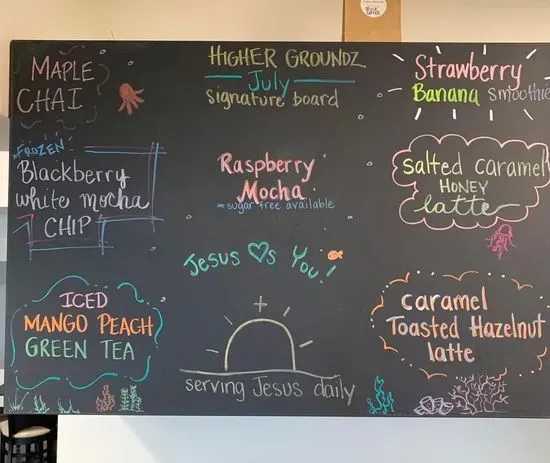 MAPLE
CHAI
HIGHER GROUNDZ
July
signature board
Strawberry
Banana smoothie
*FROZEN
Blackberry
white mocha
CHIP
Raspberry
Mocha
*sugar free available
salted caramel
HONEY
latte
Jesus ♡s You!
ICED
MANGO PEACH
GREEN TEA
caramel
Toasted Hazelnut
latte
serving Jesus daily